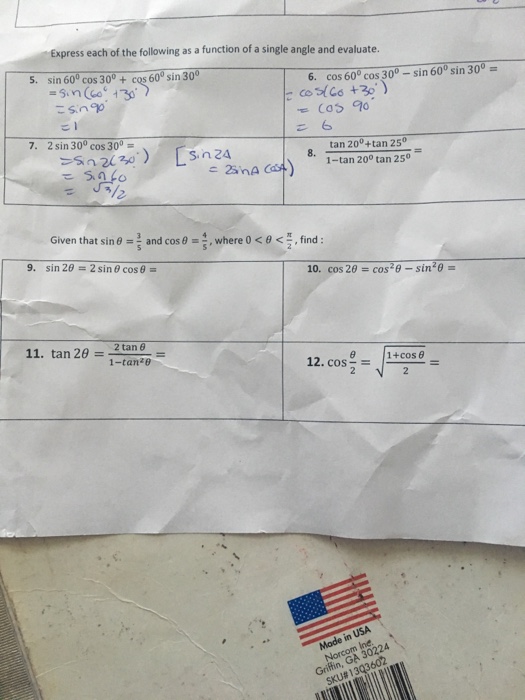 Express each of the following as a function of a single angle and evaluate.
5. sin 60⁰ cos 30⁰ + cos 60⁰ sin 30⁰
= sin(60° + 30°)
= sin 90°
= 1
6. cos 60⁰ cos 30⁰ − sin 60⁰ sin 30⁰ =
= cos(60 + 30°)
= cos 90°
= 6
7. 2 sin 30⁰ cos 30⁰ =
= sin 2(30°)
= sin 60
= √3/2
[sin2A
= 2sinA cosA)
8. tan 20⁰+tan 25⁰ / 1−tan 20⁰ tan 25⁰ =
Given that sin θ = 3/5 and cos θ = 4/5, where 0 < θ < π/2, find :
9. sin 2θ = 2 sin θ cos θ =
10. cos 2θ = cos²θ − sin²θ =
11. tan 2θ = 2 tan θ / 1−tan²θ =
12. cos θ/2 = √(1+cos θ / 2) =
Made in USA
Norcom Inc.
Griffin, GA 30224
SKU# 13Q3602